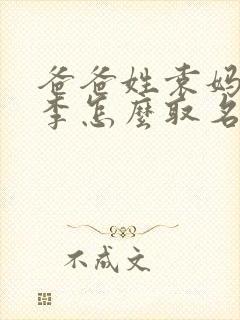 爸爸姓袁妈
李怎麼取名
不成文